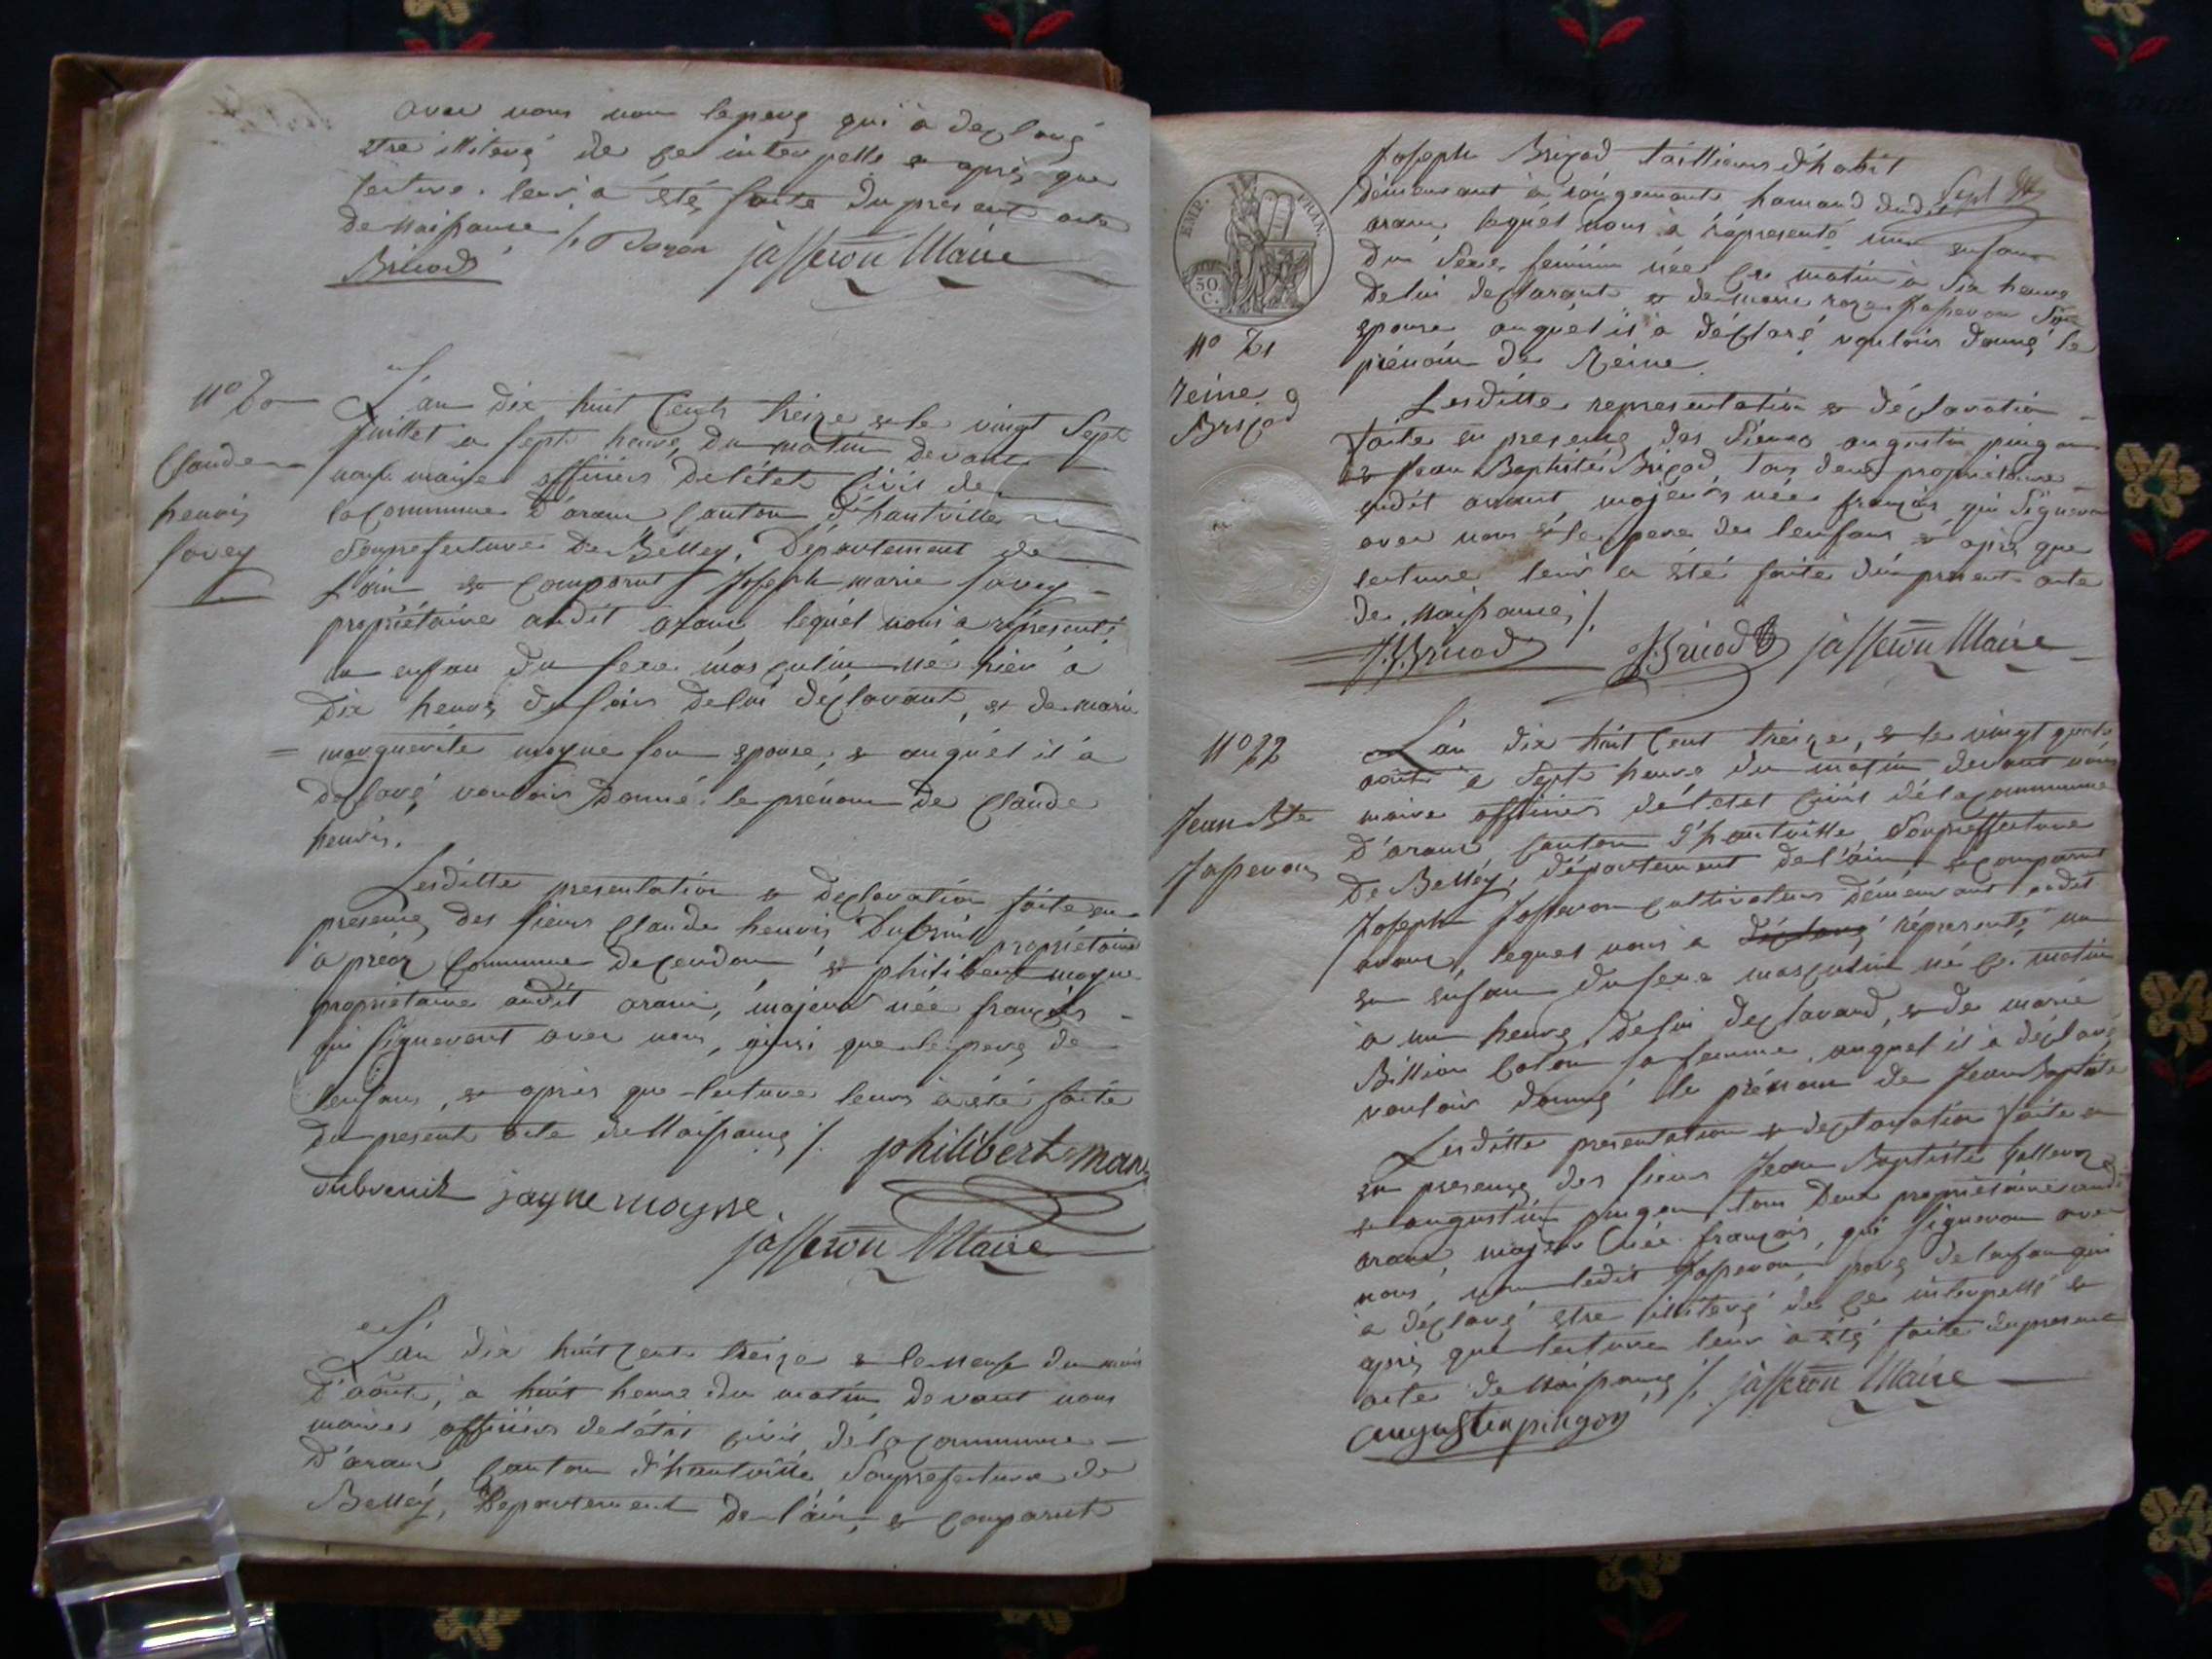 avec nous non le perç qui à declaré
etre illiteré de ce interpellé et après que
lecture leur a été faite du present acte
de naissance
Bricod jasseron Maire
n° 20
Claude
henris
Savey
L'an dix huit Cents treize et le vingt Sept
Juillet a Sept heure du matin devant
nous maire officier de létat Civil de
la Commune d'aranc Canton d'hautville
Souprefecture De Belley, Département de
L'ain est comparut Joseph marie Savey
propriétaire audit aranc lequel nous a réprésenté
un enfan du sexe masculin né hier à
Dix heures du soir de lui déclarant, et de marie
marguerite moyne son epouse, et auquel il à
déclaré vouloir donné le prénom de Claude
henris.
Lesditte presentation et declaration faite en
presence des sieurs Claude henris Dubreuil propriétaire
à commune de Cerdon et philibert moyne
propriétaire audit aranc, majeur née français
qui signeront avec nous, ainsi que le pere de
lenfans, et après que lecture leurs à été faite
du present acte de Naissance /. philibert
dubreuil jayne moyne
jasseron Maire
L'an dix huit Cents treize et le neuf du mois
D'août, à huit heure du matin devant nous
maire officier de létat civil de la Commune
D'aranc Canton d'hautville Souprefecture de
Belley, Departement de l'ain, et comparut
Sept
Joseph Brigod taillieur d'habit
demeurant à rougemont hamaud dudit
aranc lequel nous à réprésenté une enfant
du Sexe féminin née ce matin à Six heure
de lui declarant et de marie roze Jasseron Son
epouse auquel il à déclaré vouloir donné le
prénom de Reine.
EMP. FRAN.
50. C.
n° 21
reine
Brigod
Lesditte representation et déclaration
faite en presence des Sieurs augustin pingon
et Jean Baptiste Brigod tous deux proprietaire
audit aranc, majeurs née français qui Signeron
avec nous et le pere de lenfans et après que
lecture leur a été faite du present acte
de Naissance /.
Bricod JBricod jasseron Maire
n° 22
Jean Bte
Jasseron
L'an dix huit Cent treize, et le vingt
août a Sept heure du matin devant nous
maire officier de létat Civil de la Commune
D'aranc Canton d'hautville Souprefecture
De Belley, département de l'ain et comparut
Joseph Jasseron Cultivateur demeurant audit
aranc, lequel nous a déclaré réprésenté un
en enfant du sexe masculin né ce matin
à un heure de lui declarand, et de marie
Billion la femme, auquel il à déclaré
vouloir donné le prénom de Jean Baptiste
Lesditte presentation et declaration faite en
en presence des sieurs Jean Baptiste
et augustin pingon tous Deux propriétaire audit
aranc, majeur née français, qui signeron avec
nous, non ledit Jasseron perç de lenfan qui
a déclaré etre illiteré de ce interpellé et
après que lecture leur à été faite du present
acte de Naissance /. jasseron Maire
augustin pingon